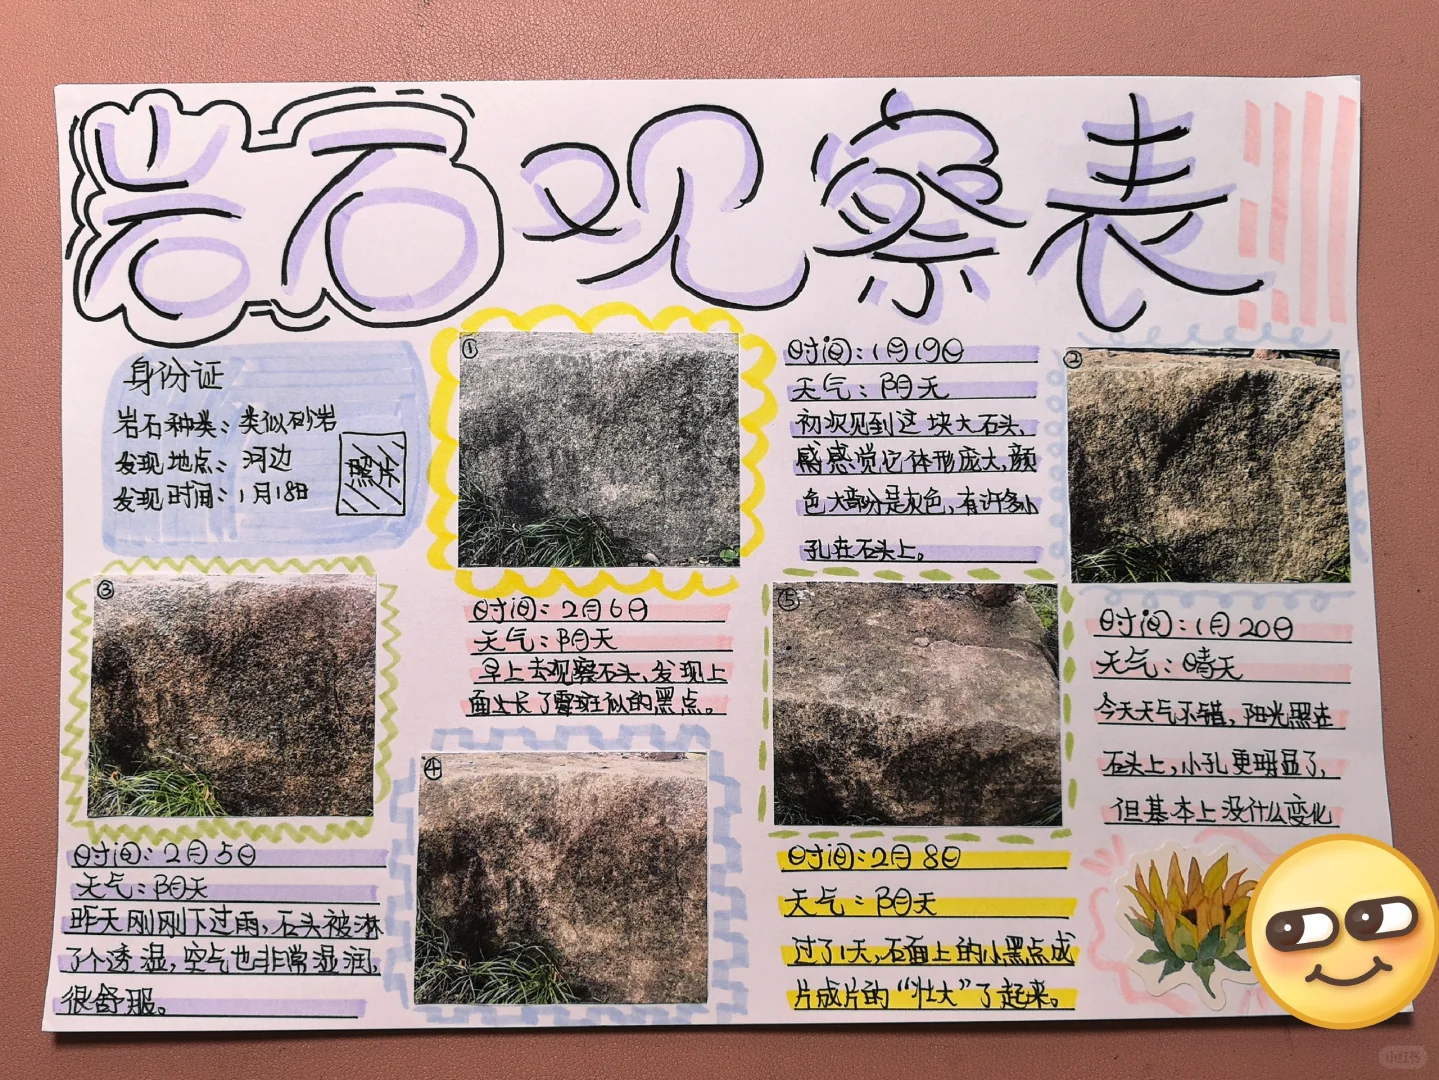 岩石观察表
身份证
岩石种类：类似砂岩
发现地点：河边
发现时间：1月18日
照片
①
时间：1月19日
天气：阴天
初次见到这块大石头，
感感觉它体形庞大，颜
色大部分是灰色，有许多小
孔在石头上。
②
时间：1月20日
天气：晴天
今天天气不错，阳光照在
石头上，小孔更明显了，
但基本上没什么变化
③
时间：2月5日
天气：阴天
昨天刚刚下过雨，石头被淋
了个透湿，空气也非常湿润，
很舒服。
④
时间：2月6日
天气：阴天
早上去观察石头，发现上
面生长了霉斑似的黑点。
⑤
时间：2月8日
天气：阴天
过了1天，石面上的小黑点成
片成片的“壮大”了起来。
小红书